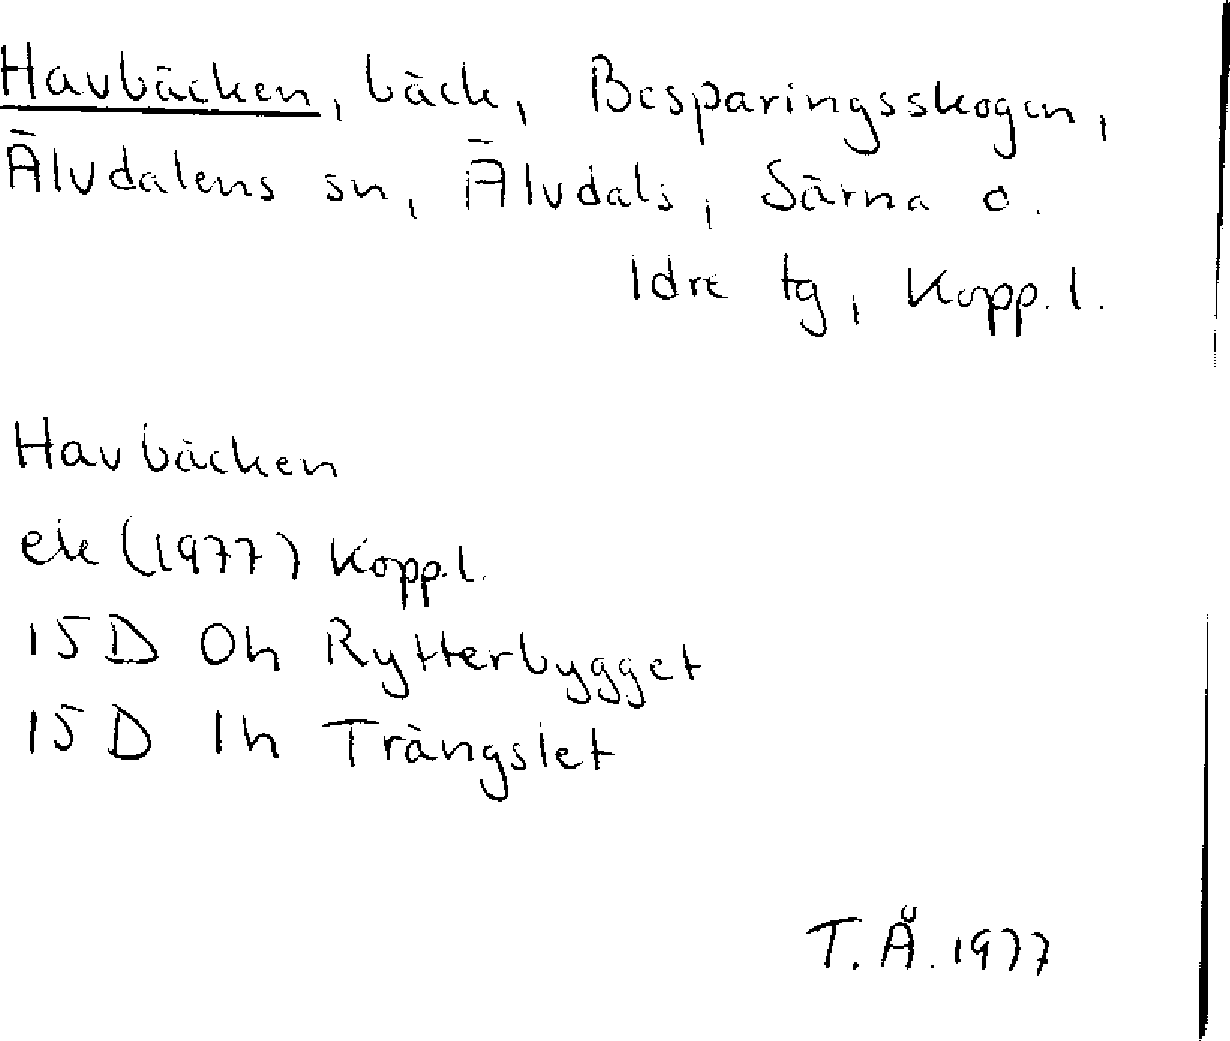 Havbäcken, bäck, Besparingsskogen,
Älvdalens sn, Älvdals, Särna o.
Idre tg, Kopp. l.
Havbäcken
ek (1977) Kopp.l.
15D 0h Rytterbygget
15D 1h Trängslet
T.Å. 1977